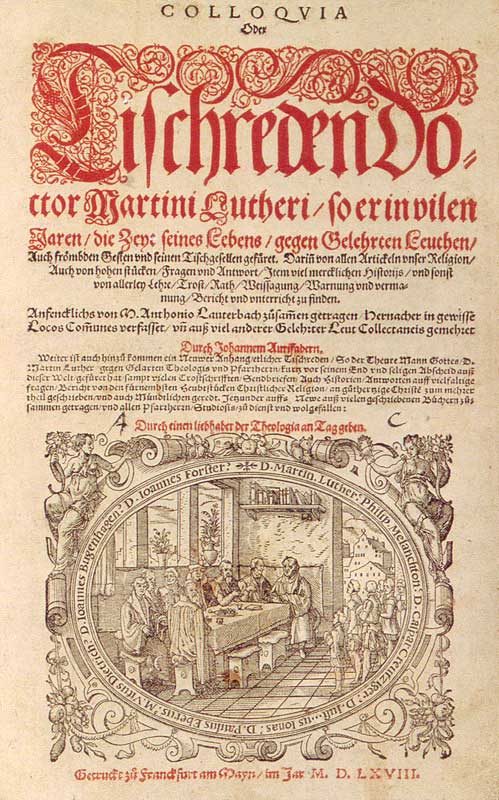 COLLOQVIA
Oder
Tischreden Do-
ctor Martini Lutheri / so er in vilen
Jaren / die Zeyt seines Lebens / gegen Gelehrten Leuthen /
Auch frömbden Gesten vnd seinen Tischgesellen gefüret. Darin̄ von allen Artickeln vnser Religion /
Auch von hohen stücken / Fragen vnd Antwort / Item viel mercklichen Historijs / vnd sonst
von allerley Lehr / Trost / Rath / Weissagung / Warnung vnd verma-
nung / Bericht vnd vnterricht zu finden.
Anfencklichs von M. Anthonio Lauterbach zůsam̄en getragen / Hernacher in gewisse
Locos Com̄unes verfasset / vn̄ auß viel anderer Gelehrter Leut Collectaneis gemehret
Durch Johannem Aurifabern.
Weiter ist auch hinzů kommen ein Neuwer Anhang / etlicher Tischreden / So der Theure Mann Gottes / D.
Martin Luther gegen Gelarten Theologis vnd Pfarrherrn / kurtz vor seinem End vnd seligen Abscheid auß
dieser Welt gefüret hat sampt vielen Trostschrifften / Sendbriefen / Auch Historien / Antworten auff vielfaltige
fragen / Bericht von den fürnembsten Heubtstücken Christlicher Religion / an gůthertzige Christē zum mehrer
theil geschrieben / vnd auch Mündtlichen geredt. Jetzunder auffs Newe auß vielen geschriebenen Büchern zů
sammen getragen / vnd allen Pfarrherrn / Studiosis / zů dienst vnd wolgefallen:
Durch einen liebhaber der Theologia an Tag geben.
A C
D. Martin. Luther: Philip Melanthon: D. Caspar Creutziger: D. Just us Jonas: D. Paulus Eberus: M. Vitus Dietrich: D. Ioannes Bugenhagen: D. Ioannes Forster:
Getruckt zů Franckfurt am Mayn / im Jar M. D. LXVIII.